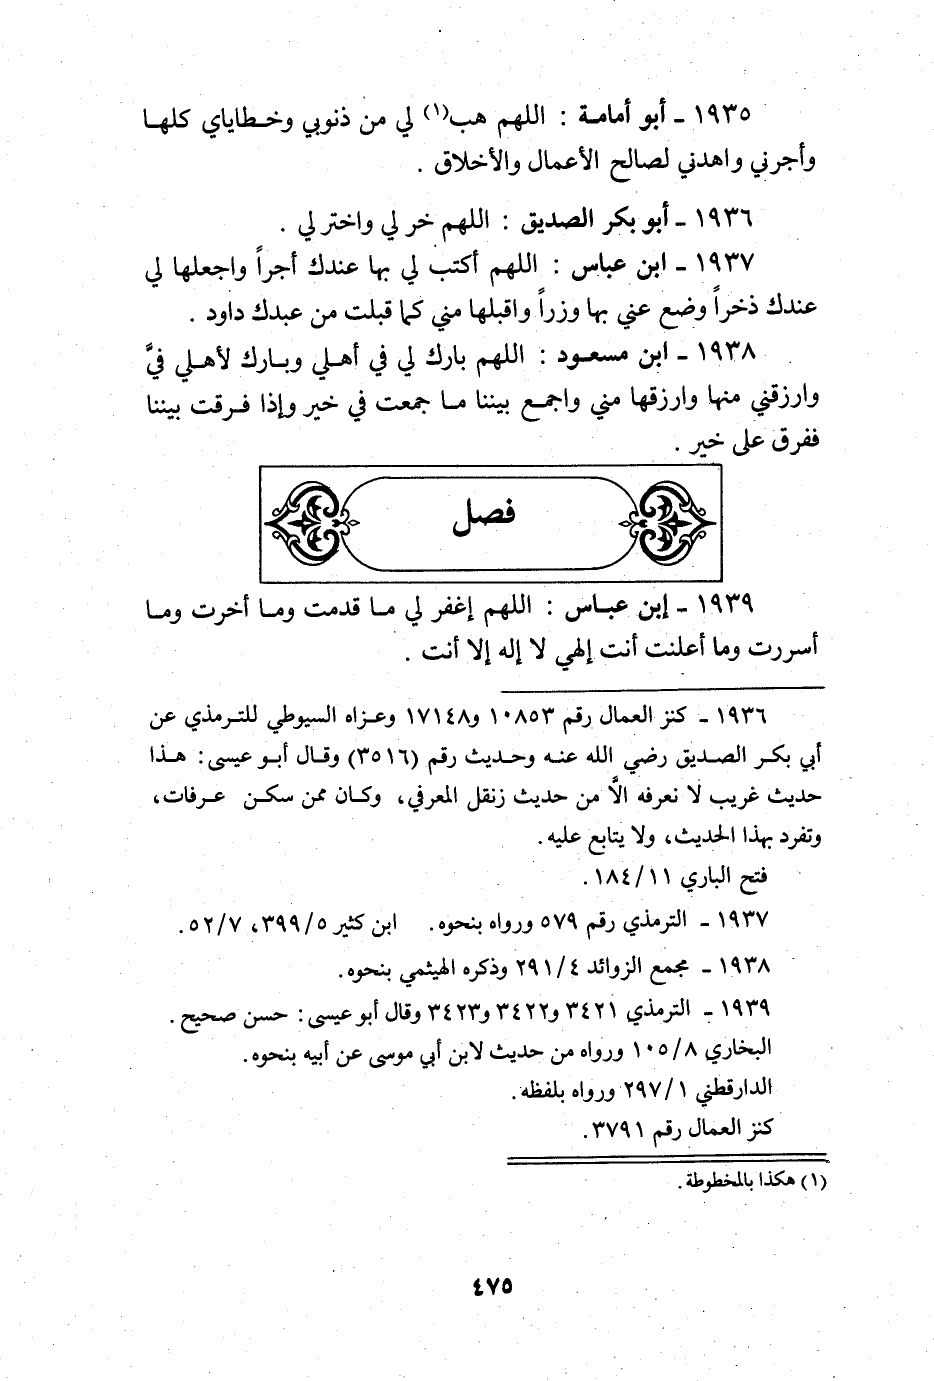 ١٩٣٥ - أبو أمامة : اللهم هب(١) لي من ذنوبي وخطاياي كلها
وأجرني واهدني لصالح الأعمال والأخلاق .
١٩٣٦ - أبو بكر الصديق : اللهم خر لي واختر لي .
١٩٣٧ - ابن عباس : اللهم أكتب لي بها عندك أجراً واجعلها لي
عندك ذخراً وضع عني بها وزراً واقبلها مني كما قبلت من عبدك داود .
١٩٣٨ - ابن مسعود : اللهم بارك لي في أهلي وبارك لأهلي فيَّ
وارزقني منها وارزقها مني واجمع بيننا ما جمعت في خير وإذا فرقت بيننا
ففرق على خير .
فصل
١٩٣٩ - إبن عباس : اللهم إغفر لي ما قدمت وما أخرت وما
أسررت وما أعلنت أنت إلهي لا إله إلا أنت .
١٩٣٦ - كنز العمال رقم ١٠٨٥٣ و١٧١٤٨ وعزاه السيوطي للترمذي عن
أبي بكر الصديق رضي الله عنه وحديث رقم (٣٥١٦) وقال أبو عيسى: هذا
حديث غريب لا نعرفه الاَّ من حديث زنقل المعرفي، وكان ممن سكن عرفات،
وتفرد بهذا الحديث، ولا يتابع عليه.
فتح الباري ١٨٤/١١.
١٩٣٧ - الترمذي رقم ٥٧٩ ورواه بنحوه. ابن كثير ٣٩٩/٥، ٥٢/٧.
١٩٣٨ - مجمع الزوائد ٢٩١/٤ وذكره الهيثمي بنحوه.
١٩٣٩ - الترمذي ٣٤٢١ و٣٤٢٢ و٣٤٢٣ وقال أبو عيسى: حسن صحيح.
البخاري ١٠٥/٨ ورواه من حديث لابن أبي موسى عن أبيه بنحوه.
الدارقطني ٢٩٧/١ ورواه بلفظه.
كنز العمال رقم ٣٧٩١.
(١) هكذا بالمخطوطة.
٤٧٥